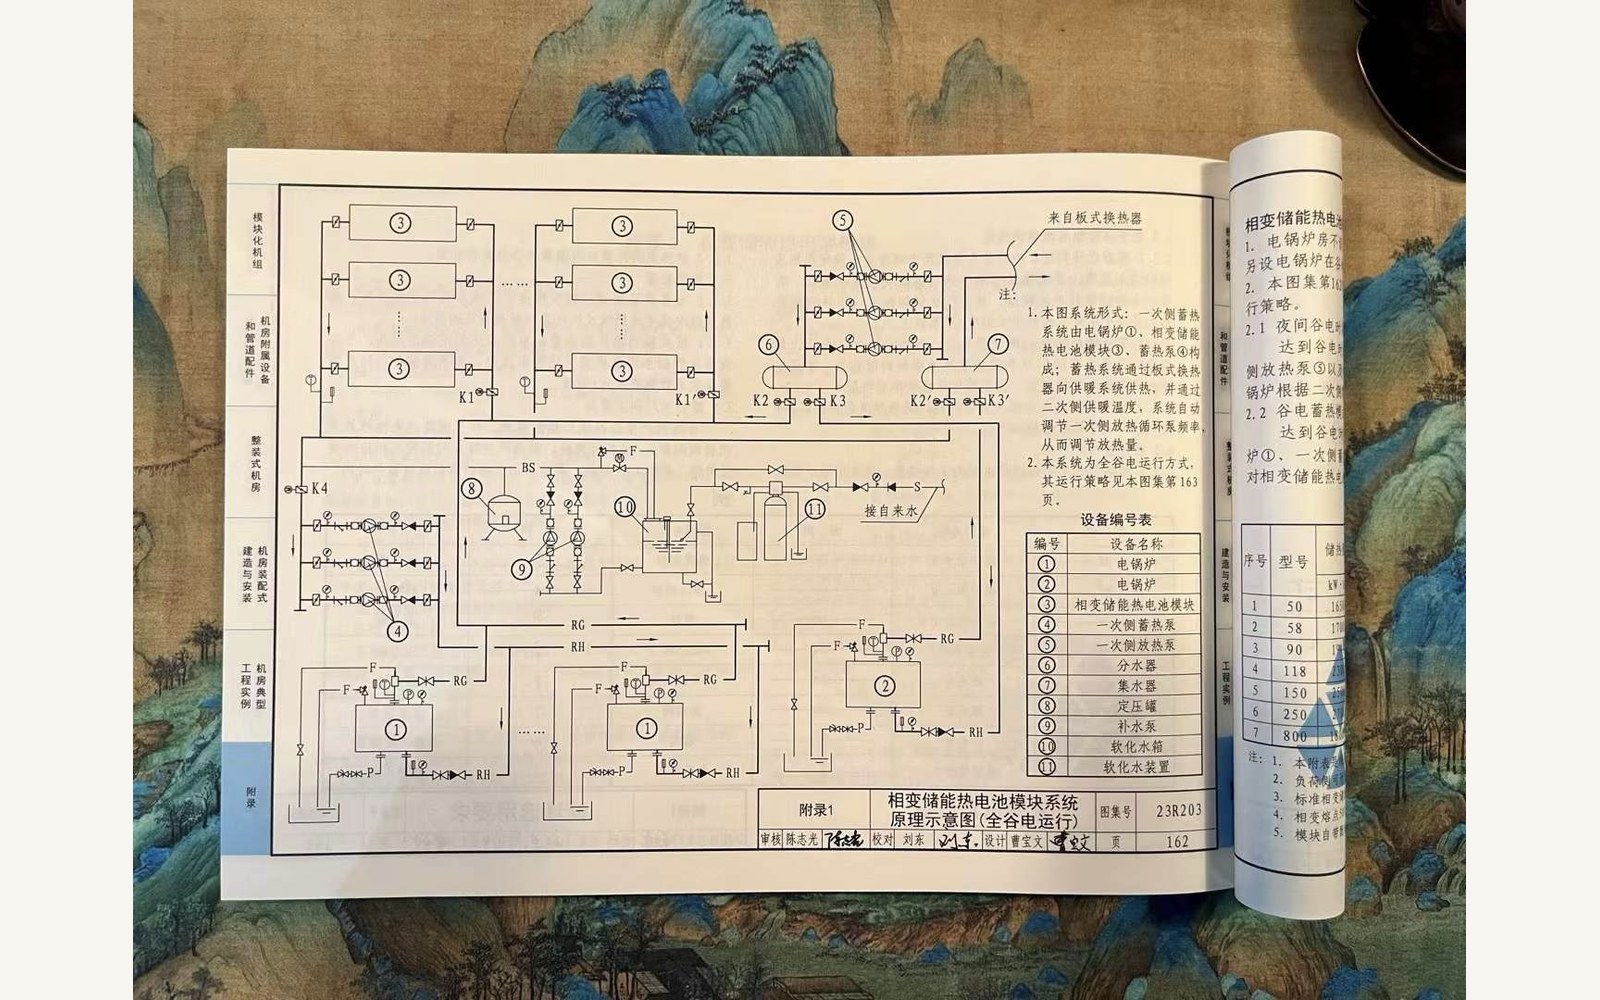 模块化机组
机房附属设备
和管道配件
整装式机房
机房装配式
建造与安装
机房典型
工程实例
附录
③
③
③
③
③
③
……
K1
K1′
⑤
来自板式换热器
⑥
⑦
K2
K3
K2′
K3′
K4
④
BS
⑧
⑨
F
M
⑩
⑪
S
接自来水
RG
RH
F
F
RG
①
P
RH
……
F
F
RG
①
P
RH
F
F
RG
②
P
RH
注:
1.本图系统形式：一次侧蓄热
系统由电锅炉①、相变储能
热电池模块③、蓄热泵④构
成；蓄热系统通过板式换热
器向供暖系统供热，并通过
二次侧供暖温度，系统自动
调节一次侧放热循环泵频率，
从而调节放热量。
2.本系统为全谷电运行方式，
其运行策略见本图集第163
页。
设备编号表
编号 设备名称
① 电锅炉
② 电锅炉
③ 相变储能热电池模块
④ 一次侧蓄热泵
⑤ 一次侧放热泵
⑥ 分水器
⑦ 集水器
⑧ 定压罐
⑨ 补水泵
⑩ 软化水箱
⑪ 软化水装置
附录1
相变储能热电池模块系统
原理示意图(全谷电运行)
图集号 23R203
审核 陈志光 校对 刘东 设计 曹宝文 页 162
和管道配件
建造与安装
工程实例
相变储能热电池
1. 电锅炉房不
另设电锅炉在谷
2. 本图集第16
行策略。
2.1 夜间谷电
达到谷电
侧放热泵⑤以
锅炉根据二次侧
2.2 谷电蓄热模
达到谷电
炉①、一次侧蓄
对相变储能热电
序号 型号 储热
kW
1 50
2 58
3 90
4 118
5 150
6 250
7 800
注: 1. 本附表
2. 负荷侧
3. 标准相变
4. 相变熔点
5. 模块自带